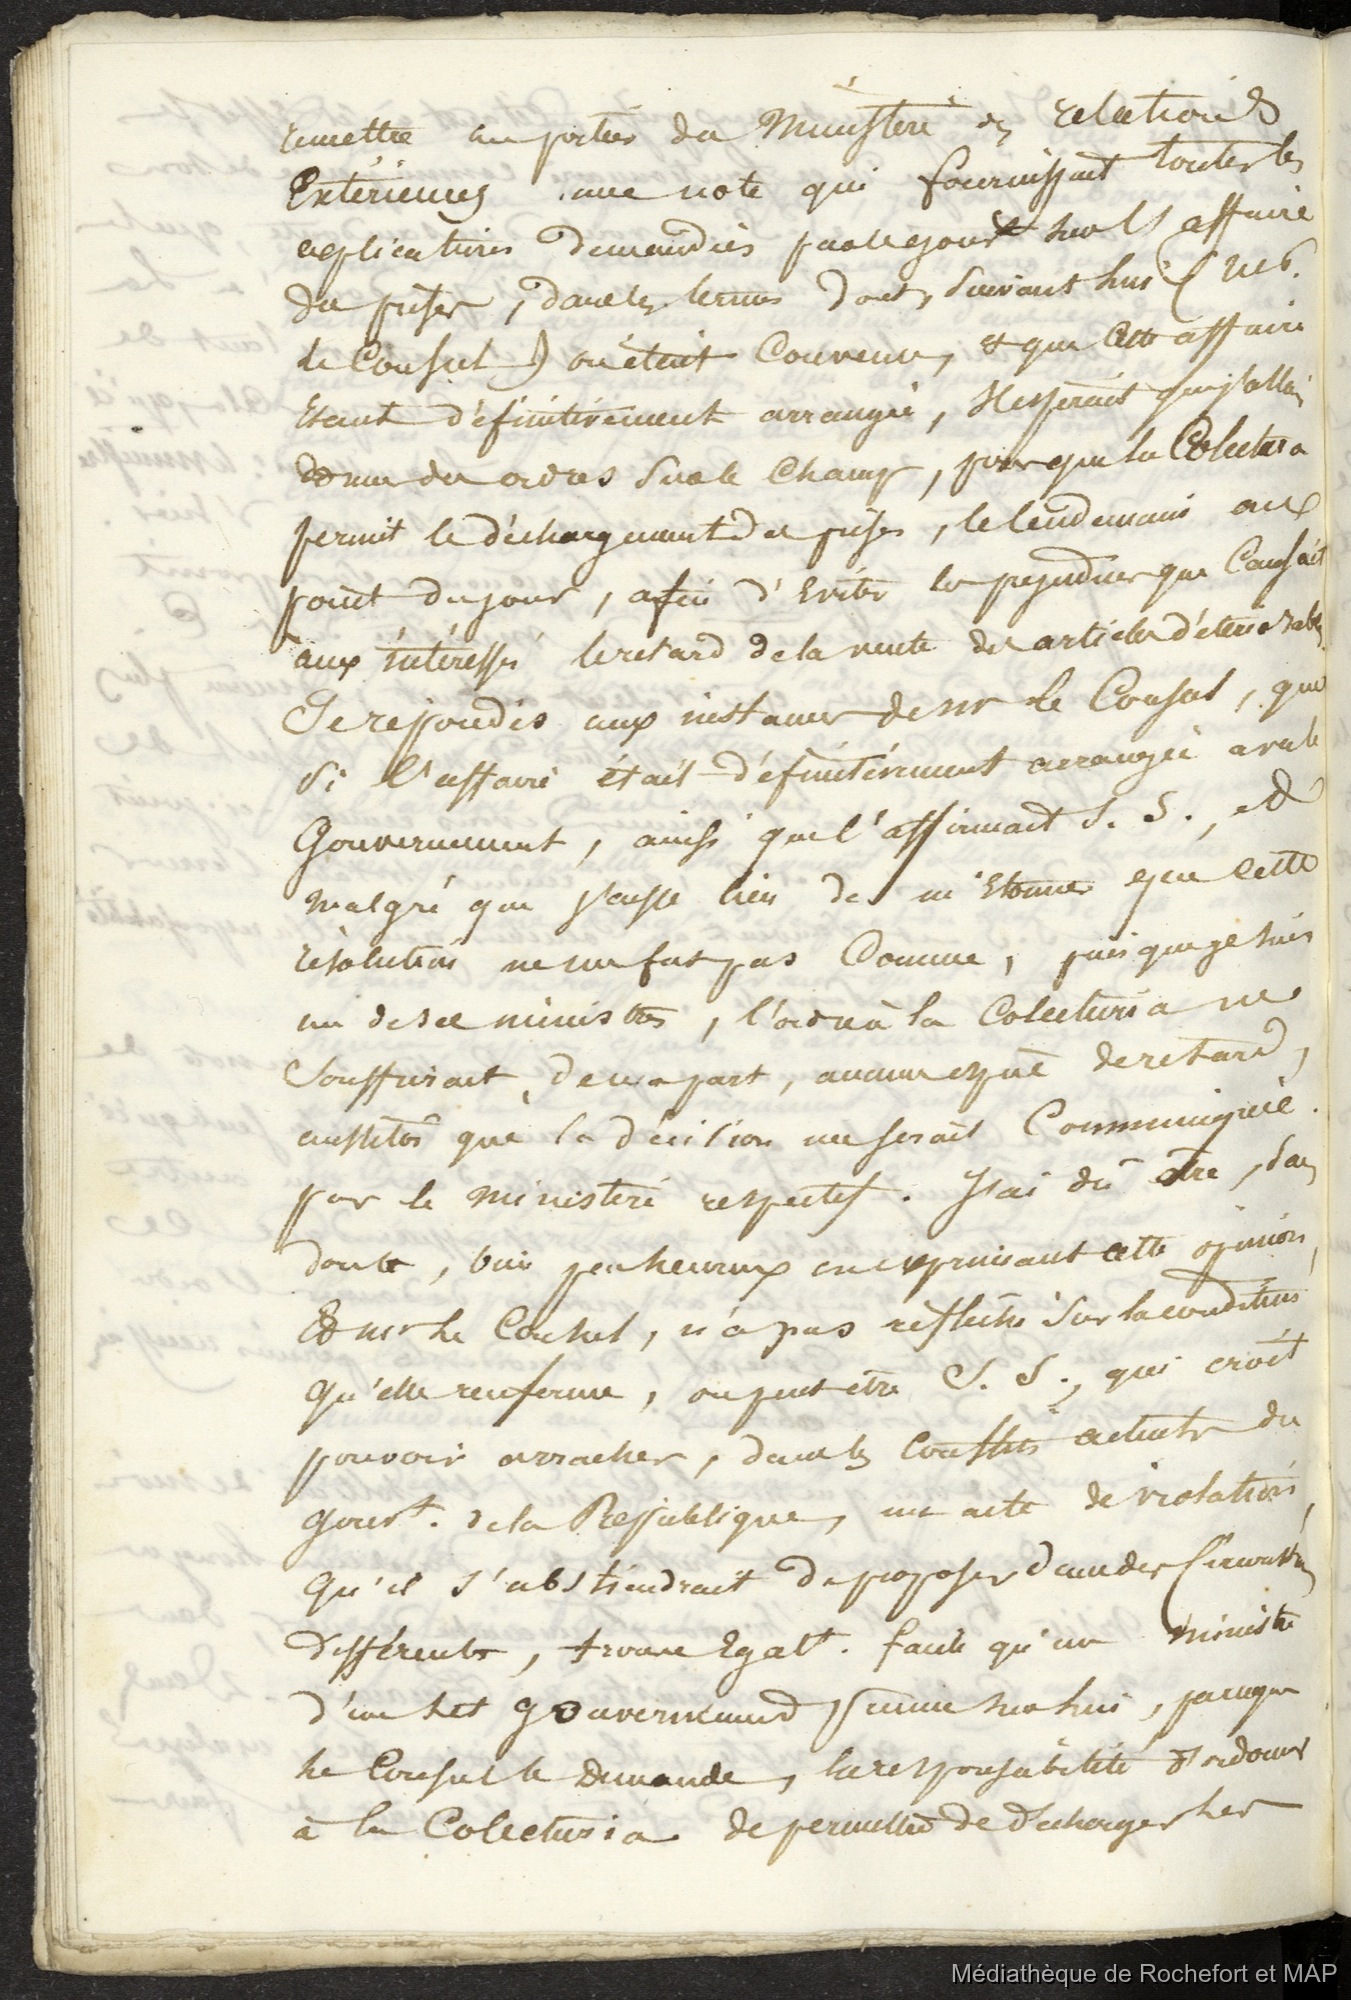 remettre au portier du Ministère des relations
Extérieures une note qui fournissait toutes les
explications demandées par le gouvt sur l'affaire
des prises, dans les termes dont, suivant lui (Mr.
le Consul) on était Convenu, et que cette affaire
Etant définitivement arrangée, Il espérait que j'allais
donner des ordres sur le Champ, pour que la Colecturia
permit le déchargement des prises, le lendemain au
point du jour, afin d'Eviter le préjudice que Causait
aux intéressés le retard de la vente des articles détériorables
Je répondis aux instances de Mr le Consul, que
Si l'affaire était définitivement arrangée avec le
Gouvernement, ainsi que l'affirmait S. S., et
malgré que j'eusse lieu de m'Etonner que cette
résolution ne me fut pas Connue, puisque je suis
un de ses ministres, l'ordre à la Colecturia ne
Souffrirait, de ma part, aucune espèce de retard,
aussitôt que la décision me serait Communiquée
par le ministère respectif. J'ai dû être, sans
doute, bien peu heureux en exprimant cette opinion,
Et Mr le Consul, n'a pas réfléchi Sur la condition
qu'elle renferme, ou peut être S. S., qui croit
pouvoir arracher, dans les Conflits actuels du
gouvt. de la République, un acte de violation,
qu'il s'abstiendrait de proposer dans des Circonstances
différentes, trouve Egalt. facile qu'un ministre
d'un tel gouvernement prenne sur lui, parceque
le Consul le demande, la responsabilité d'ordonner
à la Colecturia de permettre de décharger les
Médiathèque de Rochefort et MAP